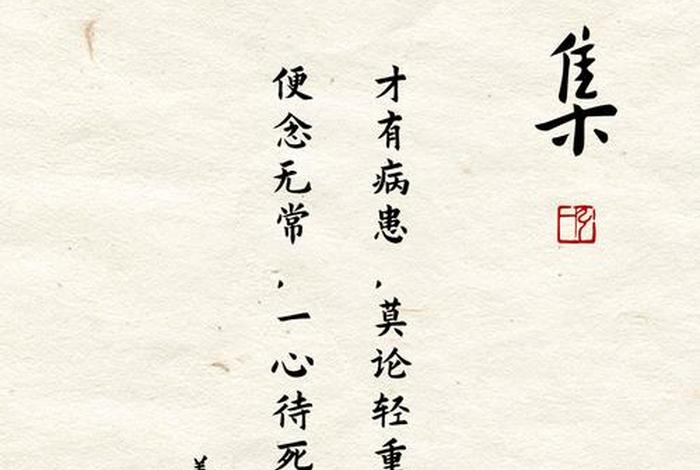 集
才有病患，莫论轻重
便念无常，一心待死